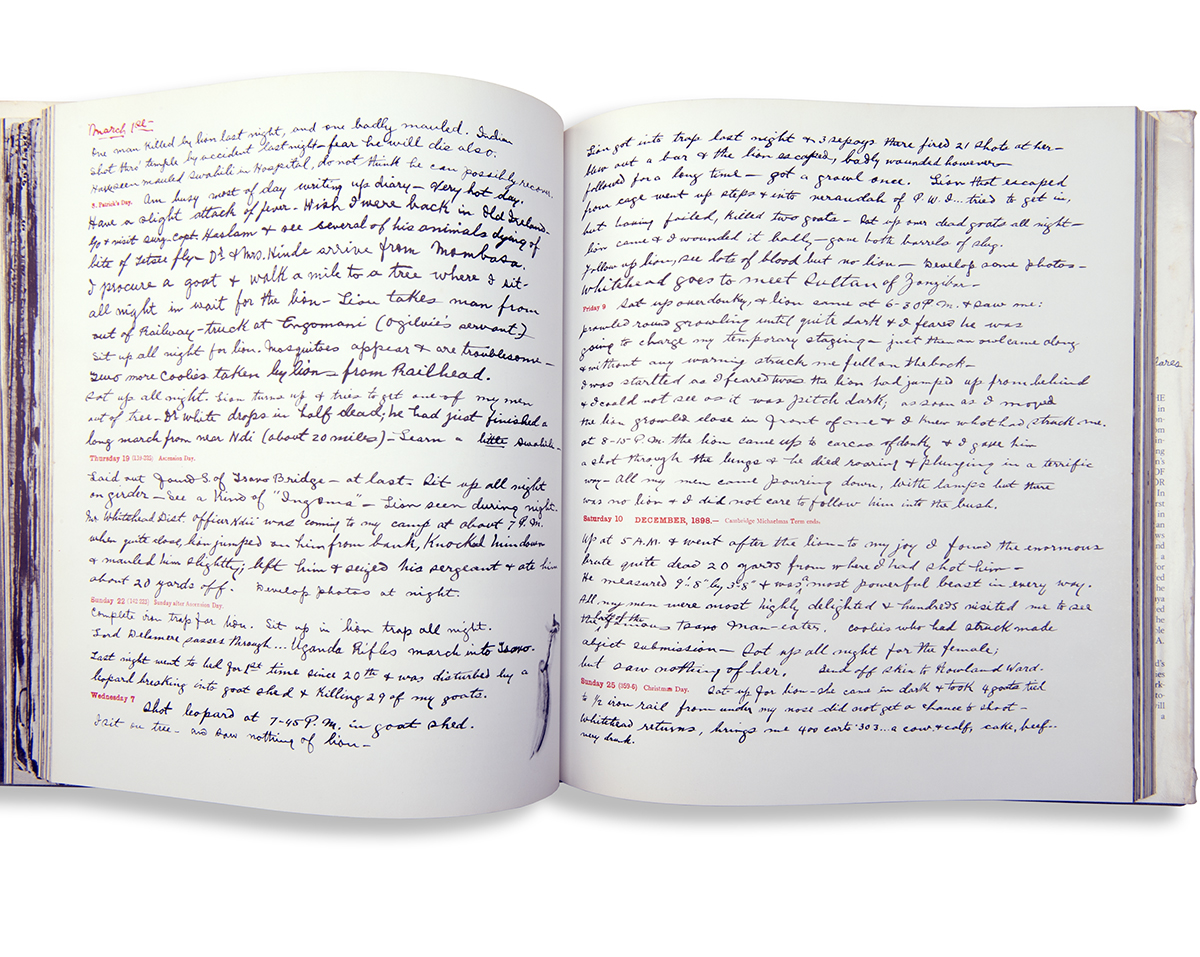 March 1st—
One man killed by lion last night, and one badly mauled. Indian
shot thro' temple by accident last night—fear he will die also.
Have seen mauled Swahili in Hospital, do not think he can possibly recover.
S. Patrick's Day. Am busy most of day writing up diary—Very hot day.
Have a slight attack of fever—Wish I were back in Old Ireland—
Go & visit Surg-Capt. Haslam & see several of his animals dying of
bite of Tsetse fly—Dr. & Mrs. Hinde arrive from Mombasa.
I procure a goat & walk a mile to a tree where I sit—
all night in wait for the lion—Lion takes man from
out of Railway-truck at Engomani (Ogilvie's servant)
Sit up all night for lion. Mosquitoes appear & are troublesome—
Two more coolies taken by lion—from Railhead.
Sat up all night. Lion turns up & tries to get one of my men
out of tree—Dr White drops in half dead; he had just finished a
long march from near Ndi (about 20 miles)—Learn a little Swahili—
Thursday 19 (139-226) Ascension Day.
Laid out found S. of Tsavo Bridge—at last. Sit up all night
on girder—See a kind of "Ingoma"—Lion seen during night.
Mr. Whitehead Dist. officer Ndii was coming to my camp at about 7 P.M.
when quite close, lion jumped on him from bank, Knocked him down
& mauled him slightly; left him & seized his sergeant & ate him
about 20 yards off. Develop photos at night.
Sunday 22 (142-223) Sunday after Ascension Day.
Complete iron trap for lion. Sit up in lion trap all night.
Lord Delamere passes through.... Uganda Rifles march into Tsavo.
Last night went to bed for 1st time since 20th & was disturbed by a
leopard breaking into goat shed & killing 29 of my goats.
Wednesday 7
Shot leopard at 7-45 P.M. in goat shed.
I sit on tree—and saw nothing of lion—
Lion got into trap last night & 3 sepoys there fired 21 shots at her—
blew out a bar & the lion escaped, badly wounded however—
followed for a long time—got a growl once. Lion that escaped
from cage went up steps & into verandah of P.W.I...tried to get in,
but having failed, killed two goats—Sat up over dead goats all night—
lion came & I wounded it badly—gave both barrels of slug.
Follow up lion, see lots of blood but no lion—Develop some photos—
Whitehead goes to meet Sultan of Zanzibar—
Friday 9 Sat up over donky, & lion came at 6-30 P.M. & saw me:
prowled round growling until quite dark & I feared he was
going to charge my temporary staging—just then an owl came along
& without any warning struck me full on the back—
I was startled as I feared twas the lion had jumped up from behind
& I could not see as it was pitch dark, as soon as I moved
the lion growled close in front of me & I knew what had struck me.
at 8-15 P.M. the lion came up to carcas of donky & I gave him
a shot through the lungs & he died roaring & plunging in a terrific
way—All my men came pouring down, with lamps but there
was no lion & I did not care to follow him into the bush.
Saturday 10 DECEMBER, 1898.— Cambridge Michaelmas Term ends.
Up at 5 A.M. & went after the lion—to my joy I found the enormous
brute quite dead 20 yards from where I had shot him—
He measured 9'-8" by 3'-8" & was a most powerful beast in every way.
All my men were most highly delighted & hundreds visited me to see
the famous Tsavo man-eater. Coolies who had struck made
abject submission—Sat up all night for the female;
but saw nothing of her. Send off skin to Rowland Ward.
Sunday 25 (359-6) Christmas Day. Sat up for lion—she came in dark & took 4 goats tied
to ½ iron rail from under my nose did not get a chance to shoot—
Whitehead returns, brings me 400 carts '303...a cow & calf, cake, beef..
very drunk.